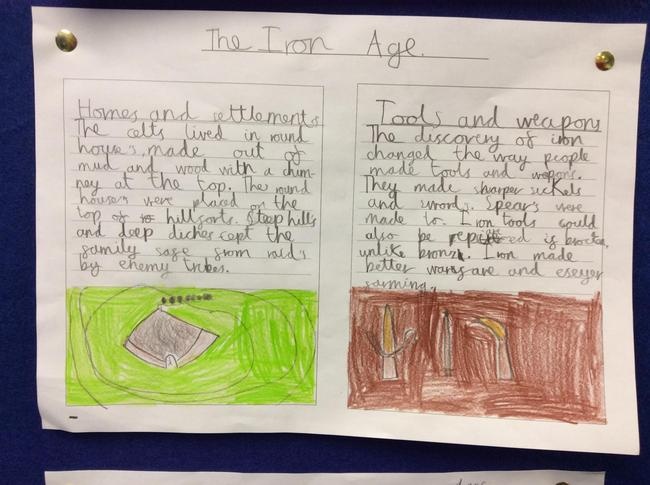 The Iron Age.
Homes and settlements
The celts lived in round
houses, made out of
mud and wood with a chim-
ney at the top. The round
houses were placed on the
top of hillforts. Steep hills
and deep diches cept the
family safe from raid's
by enemy tribes.
Tools and weapons
The discovery of iron
changed the way people
made tools and wepons.
They made sharper sickels
and swords. Spears were
made to. Iron tools could
also be if brocten,
unlike bronze. Iron made
better warfare and eseyer
farming.